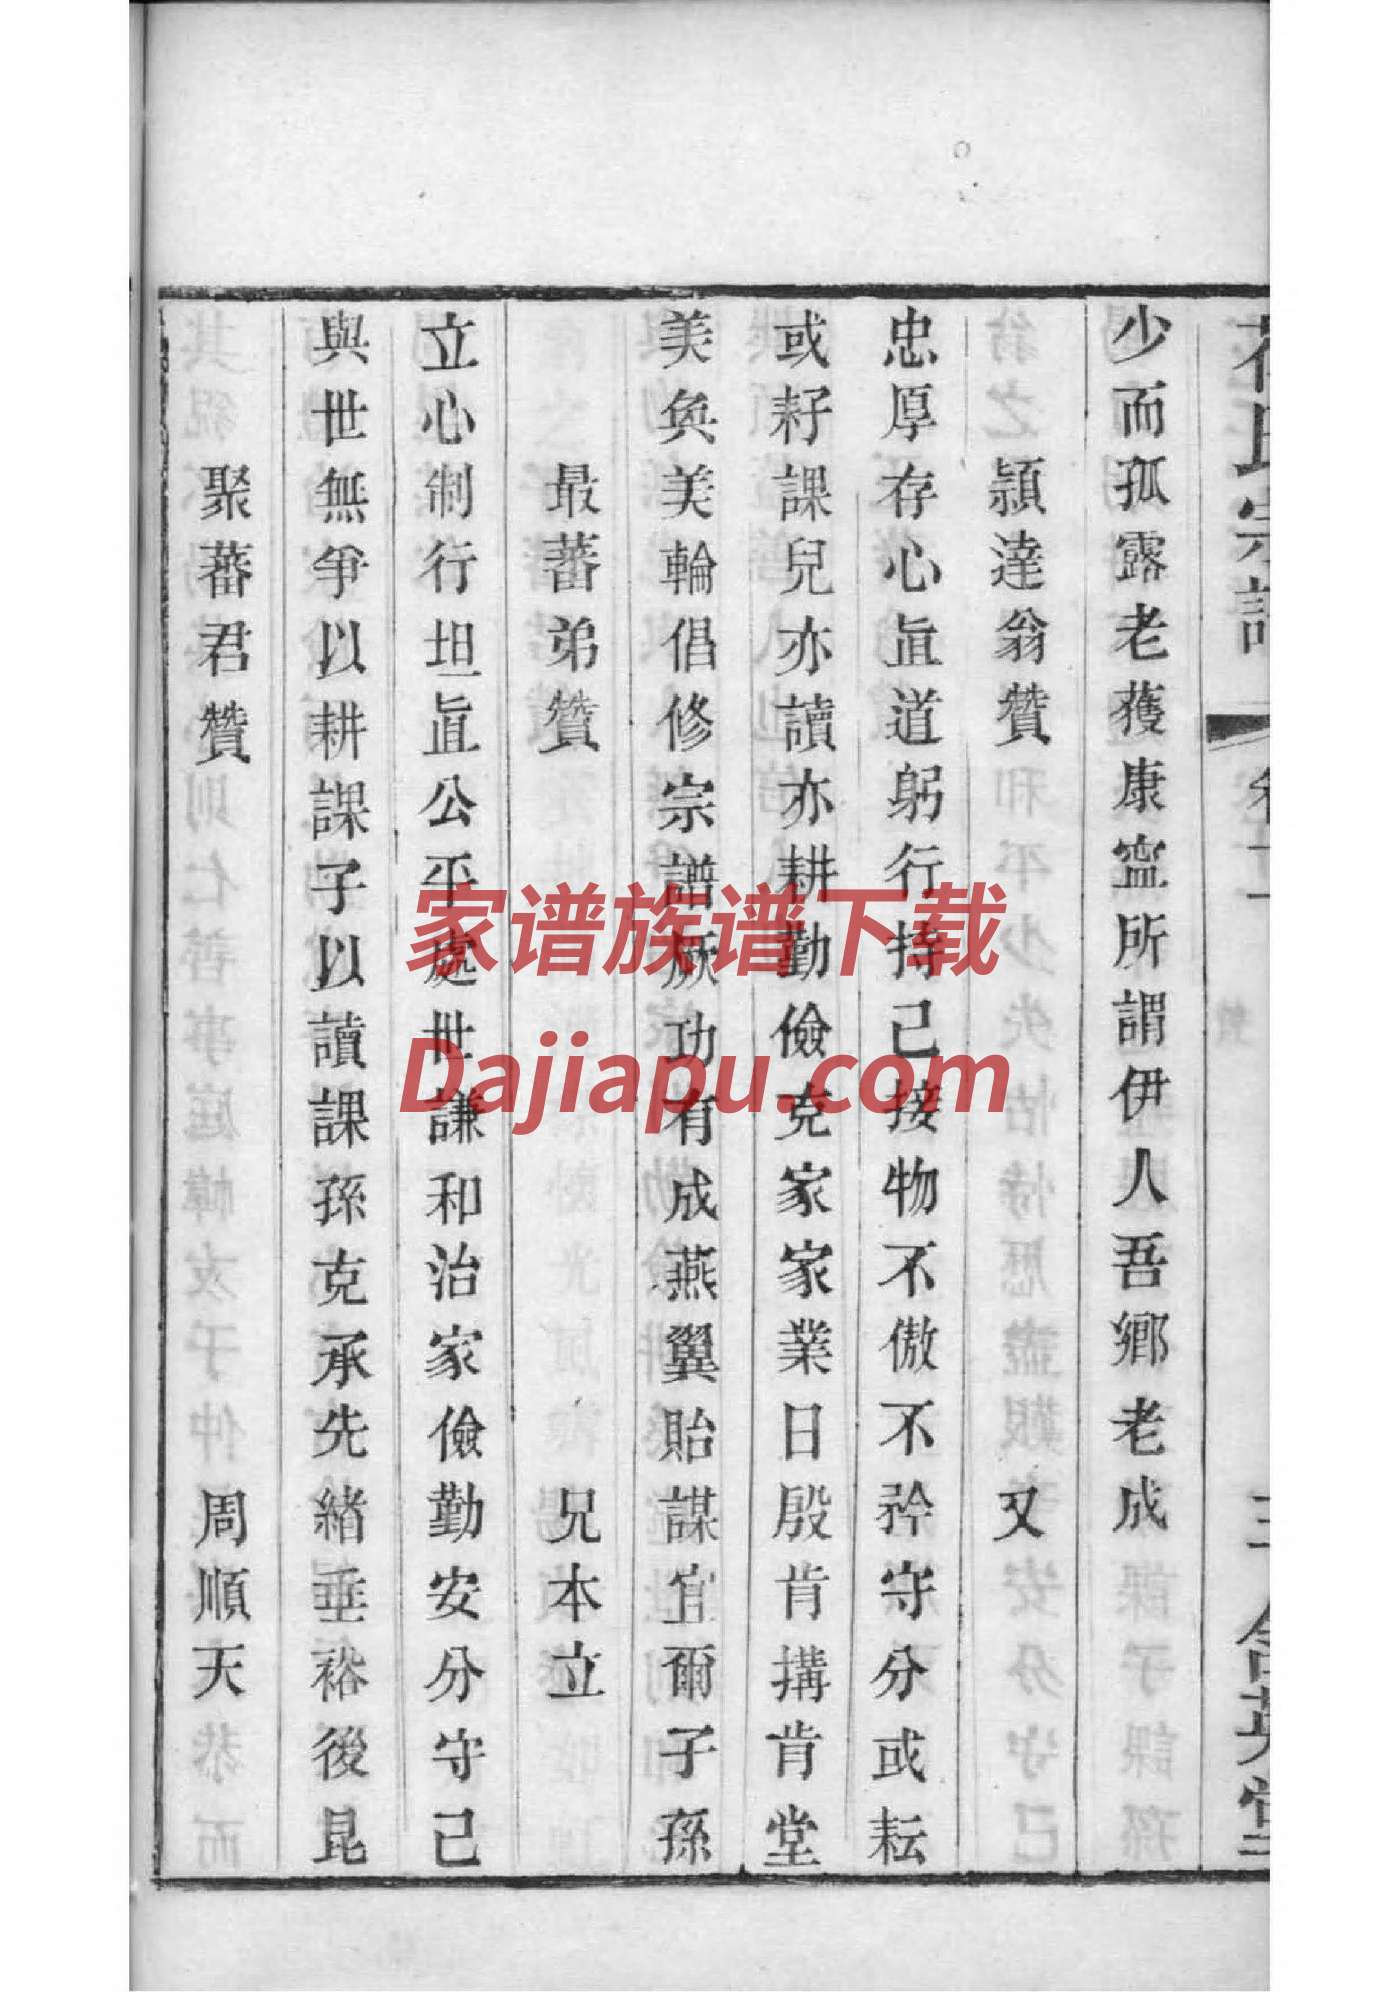 氏宗譜
少而孤露老獲康寧所謂伊人吾鄉老成
穎達翁贊 又
忠厚存心眞道躬行持己接物不傲不矜守分或耘
或耔課兒亦讀亦耕勤儉克家家業日殷肯搆肯堂
美奐美輪倡修宗譜厥功有成燕翼貽謀宜爾子孫
最蕃弟贊 兄本立
立心制行坦直公平處世謙和治家儉勤安分守己
與世無爭以耕課子以讀課孫克承先緒垂裕後昆
聚蕃君贊 周順天
家谱族谱下载
Dajiapu.com